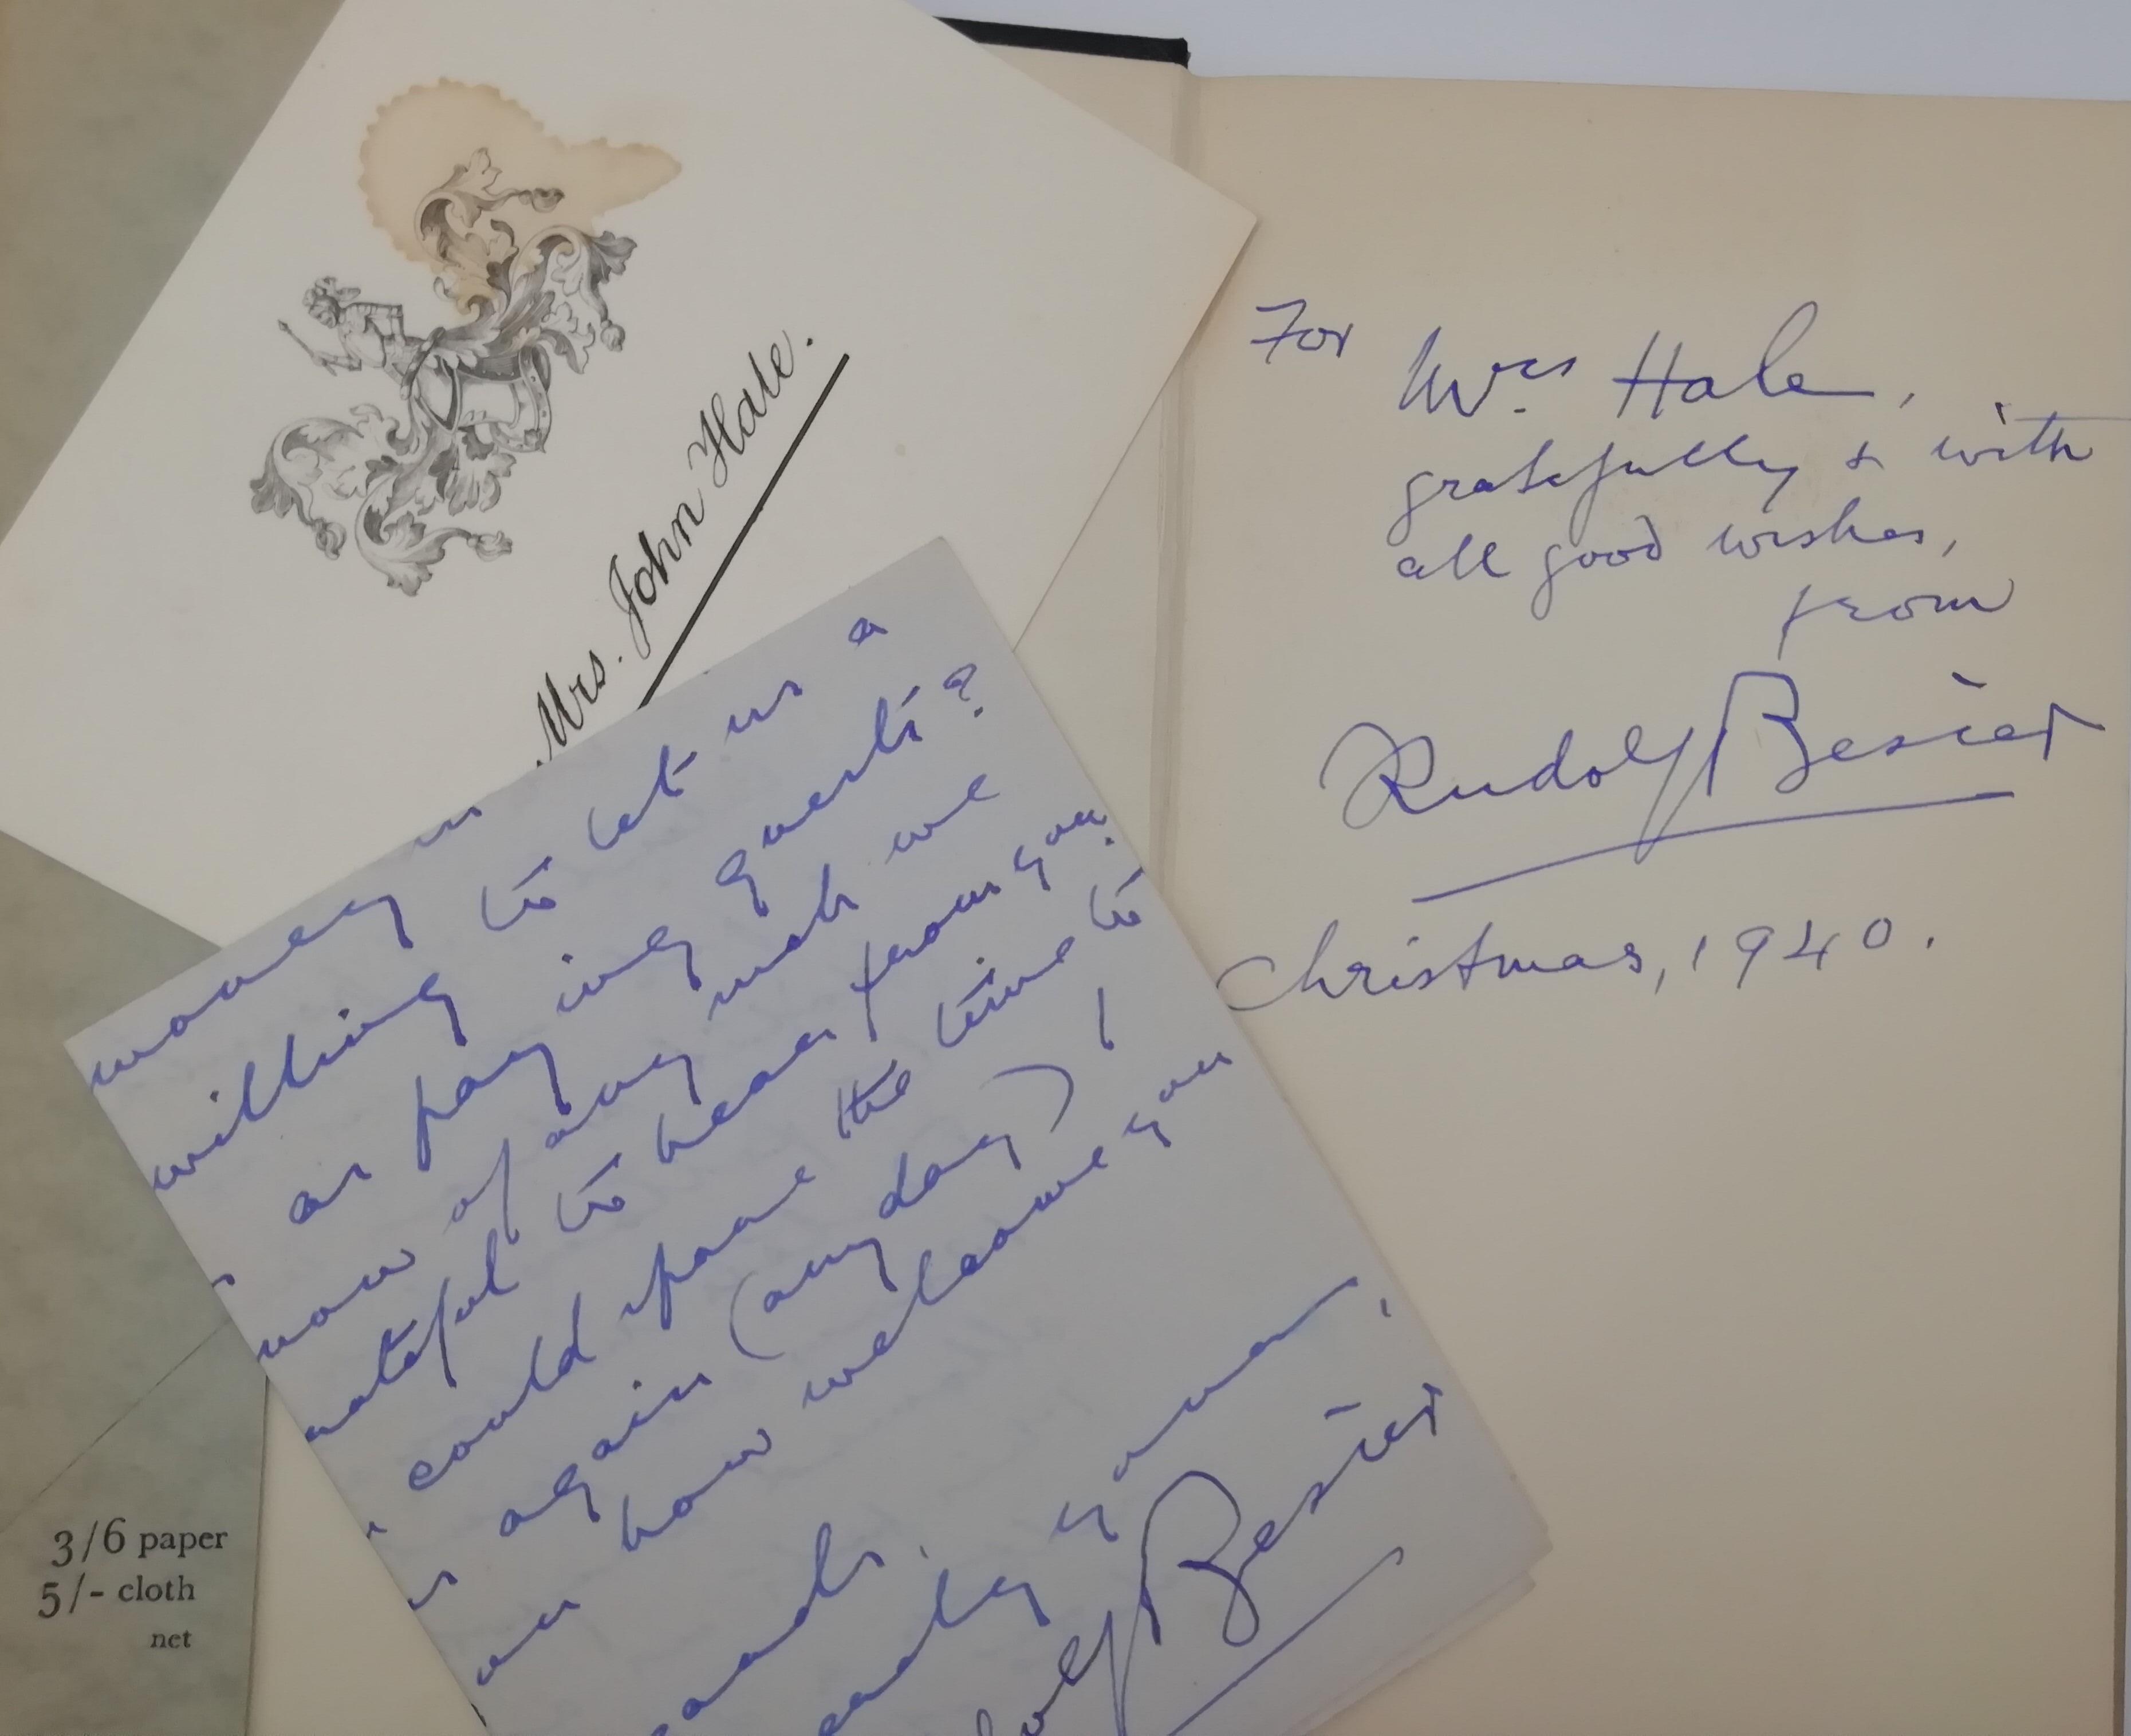 Mrs. John Hale.
For Mrs Hale,
gratefully & with
all good wishes,
from
Rudolf Besier
Christmas, 1940.
let us a
willing to
as paying guests?
of any not we
to hear from you.
could spare the time to
again (any day) I
how welcome you
yours,
Besier
3/6 paper
5/- cloth
net